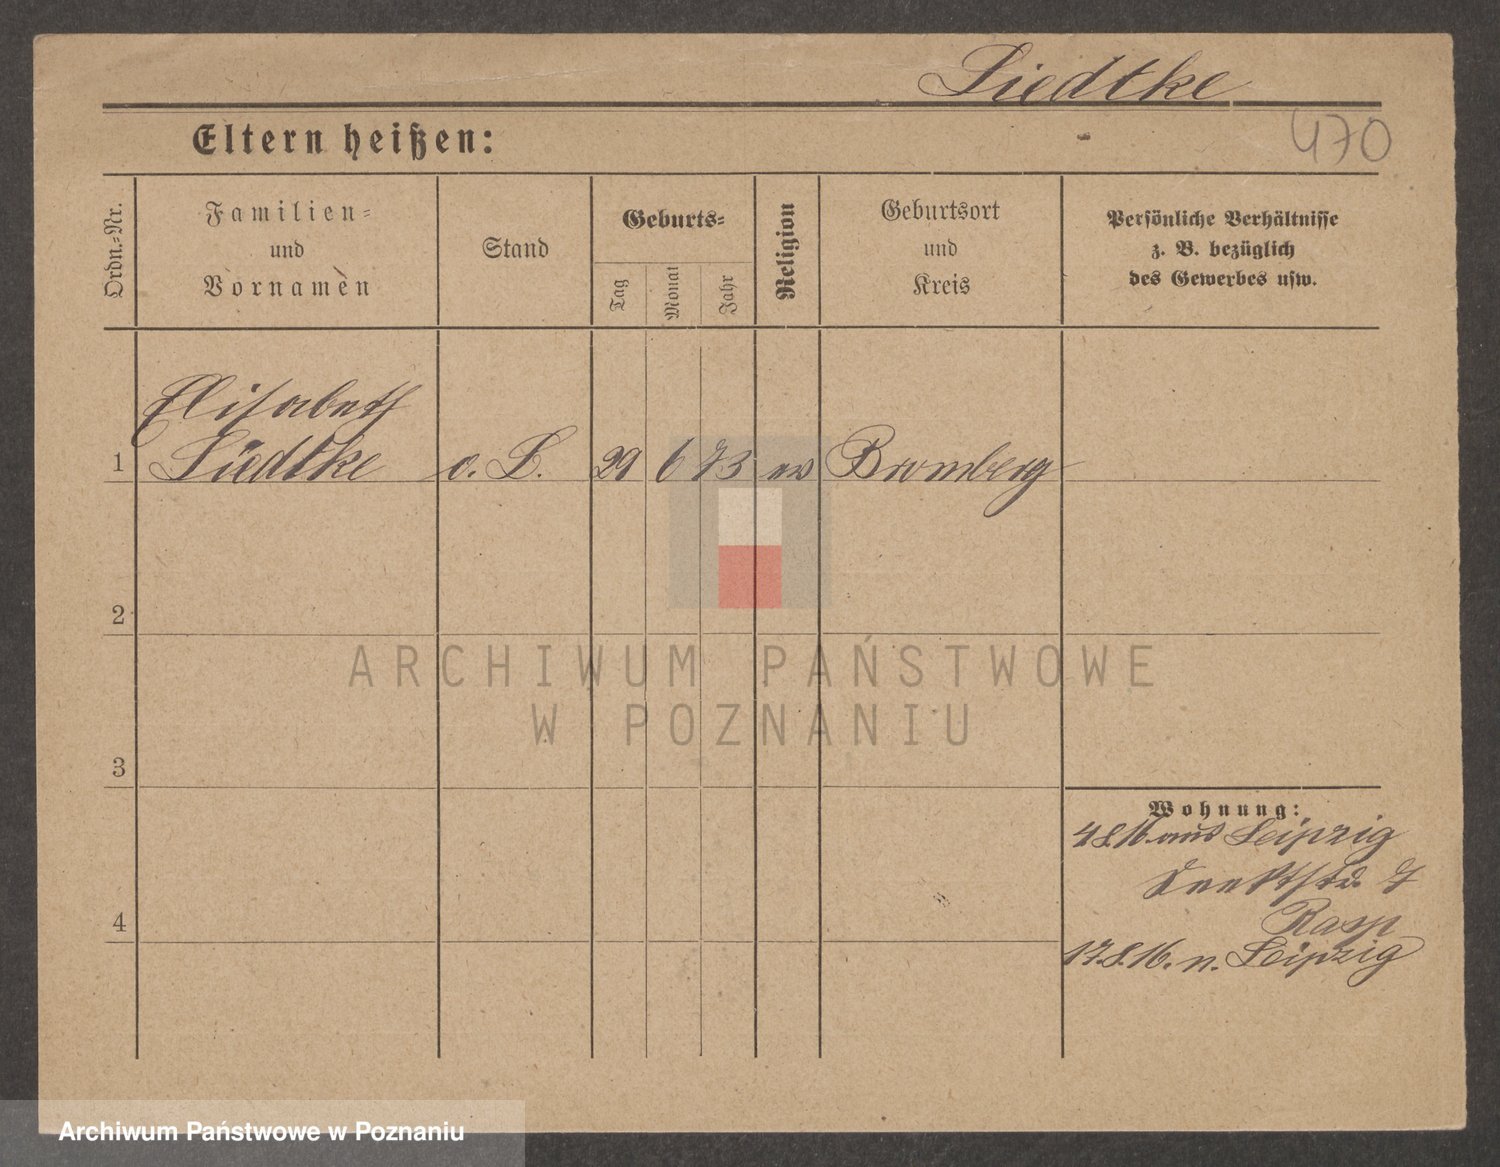 Liedtke
470
Eltern heißen:
Ordn.-Nr.
Familien-
und
Vornamen
Stand
Geburts-
Tag
Monat
Jahr
Religion
Geburtsort
und
Kreis
Persönliche Verhältnisse
z. B. bezüglich
des Gewerbes usw.
Elisabeth
1 Liedtke o. B. 29 6 73 ev Bromberg
2
ARCHIWUM PAŃSTWOWE
W POZNANIU
3
Wohnung:
4.8.16 aus Leipzig
4
Rasp
17.8.16. n. Leipzig
Archiwum Państwowe w Poznaniu